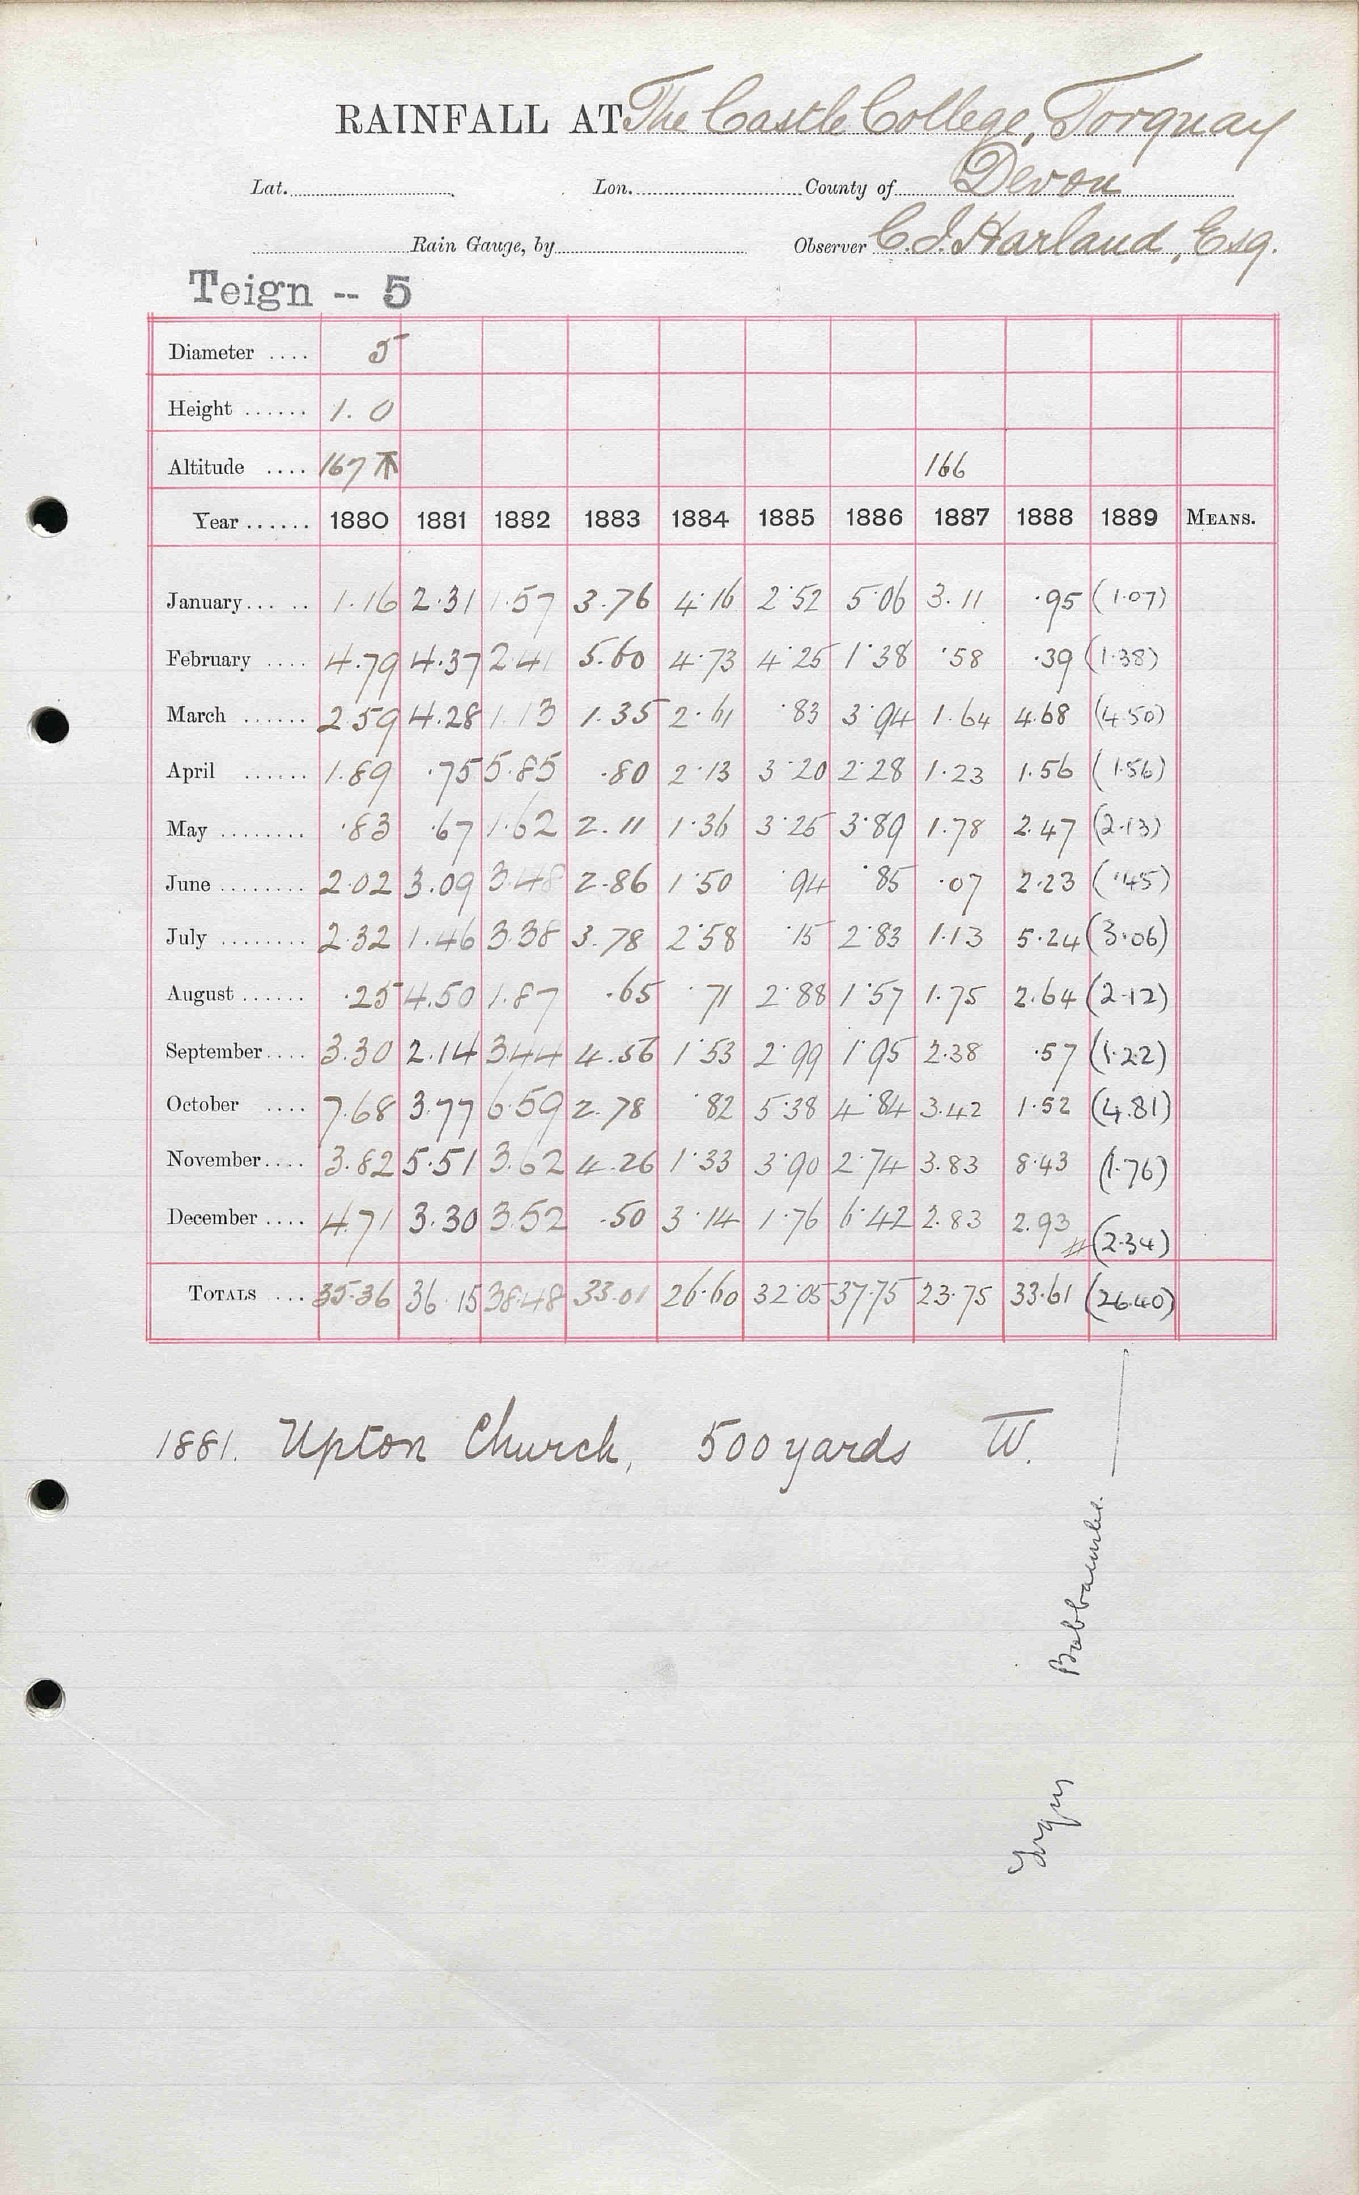 RAINFALL AT The Castle College, Torquay
Lat. Lon. County of Devon
Rain Gauge, by Observer C. J. Harland, Esq.
Teign -- 5
Diameter .... 5
Height ...... 1. 0
Altitude .... 167 166
Year ...... 1880 1881 1882 1883 1884 1885 1886 1887 1888 1889 MEANS.
January... .. 1.16 2.31 1.57 3.76 4.16 2.52 5.06 3.11 .95 (1.07)
February .... 4.79 4.37 2.41 5.60 4.73 4.25 1.38 .58 .39 (1.38)
March ...... 2.59 4.28 1.13 1.35 2.61 .83 3.94 1.64 4.68 (4.50)
April ...... 1.89 .75 5.85 .80 2.13 3.20 2.28 1.23 1.56 (1.56)
May ........ .83 .67 1.62 2.11 1.36 3.25 3.89 1.78 2.47 (2.13)
June ........ 2.02 3.09 3.48 2.86 1.50 .94 .85 .07 2.23 (.45)
July ........ 2.32 1.46 3.38 3.78 2.58 .15 2.83 1.13 5.24 (3.06)
August ...... .25 4.50 1.87 .65 .71 2.88 1.57 1.75 2.64 (2.12)
September.... 3.30 2.14 3.44 4.56 1.53 2.99 1.95 2.38 .57 (1.22)
October .... 7.68 3.77 6.59 2.78 .82 5.38 4.84 3.42 1.52 (4.81)
November.... 3.82 5.51 3.62 4.26 1.33 3.90 2.74 3.83 8.43 (1.76)
December .... 4.71 3.30 3.52 .50 3.14 1.76 6.42 2.83 2.93 (2.34)
TOTALS ... 35.36 36.15 38.48 33.01 26.60 32.05 37.75 23.75 33.61 (26.40)
1881. Upton Church, 500 yards W.
Babbacombe.